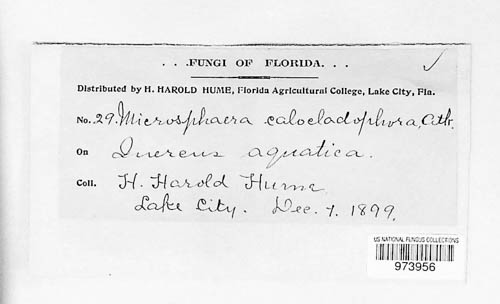 . . .FUNGI OF FLORIDA. . .
Distributed by H. HAROLD HUME, Florida Agricultural College, Lake City, Fla.
No. 29. Microsphaera calocladophora, Atk.
On Quercus aquatica.
Coll. H. Harold Hume
Lake City. Dec. 7. 1899.
US NATIONAL FUNGUS COLLECTIONS
973956